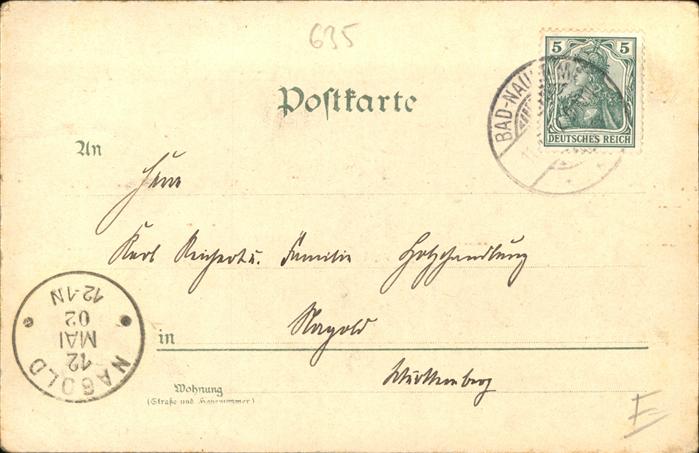 635
5 5
DEUTSCHES REICH
BAD-NAUHEIM
Postkarte
An
Herrn
Karl Reichert u. Familie Holzhandlung
in Nagold
Württemberg
Wohnung
(Straße und Hausnummer)
NAGOLD
12
MAI
02
12-1N